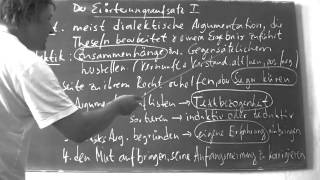 Der Erörterungsaufsatz I
1. meist dialektische Argumentation, die
Thesen bearbeitet & zu einem Ergebnis führt
Zusammenhänge zw. Gegensätzlichem
herstellen (Vernunft & Verstand
Seite zu ihrem Recht verhelfen, aber Sieger küren
auflisten → Textbezogenheit
sortieren → induktiv oder deduktiv
Arg. begründen → eigene Erfahrung einbringen
4. den Mut aufbringen, seine Anfangsmeinung zu korrigieren